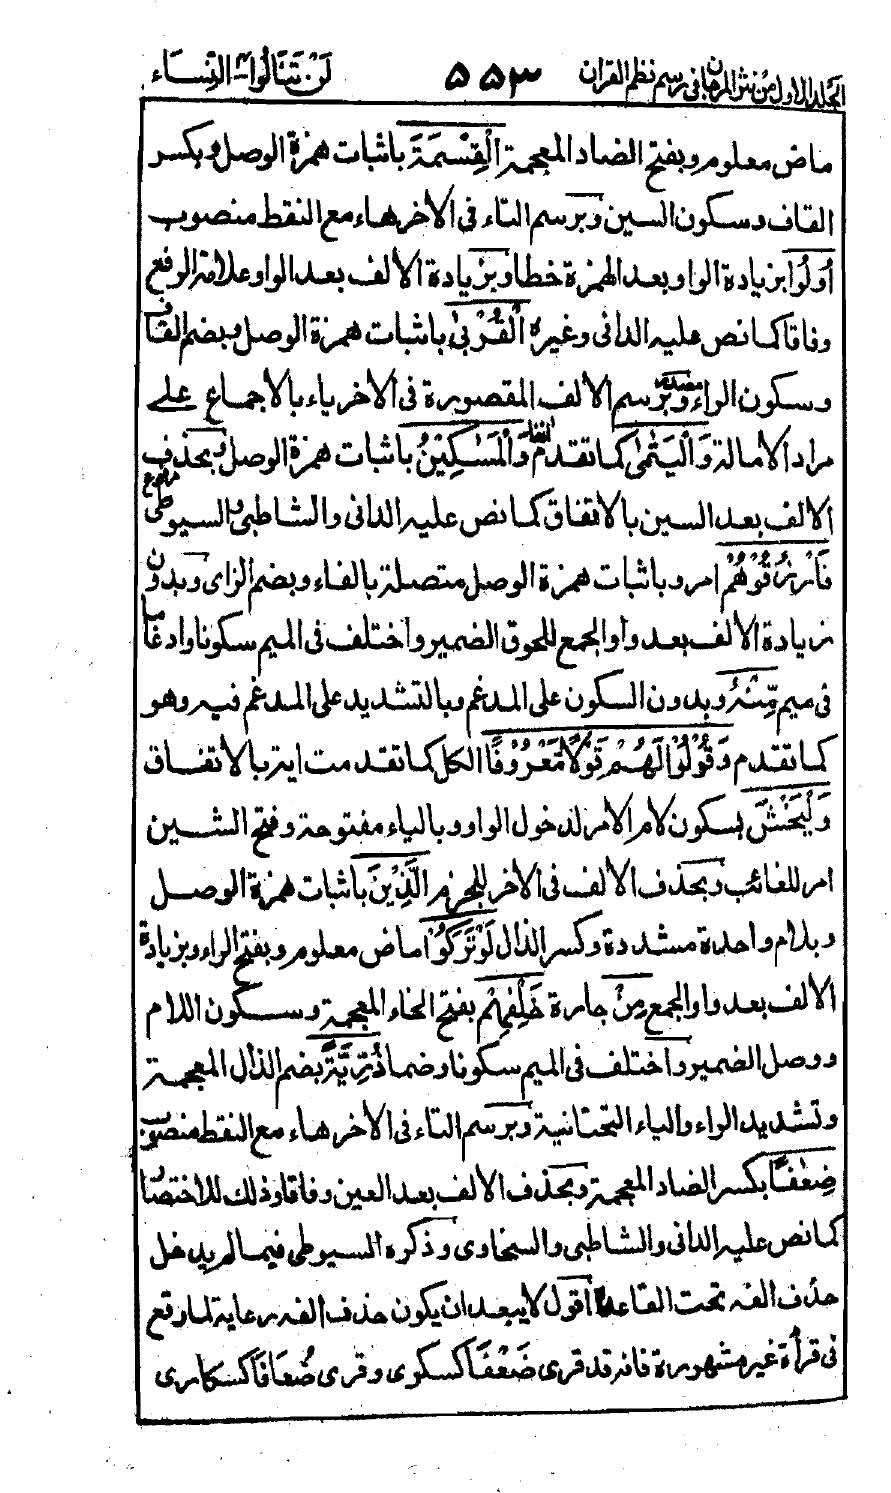 المجلد الاول من نثر المرجان فى رسم نظم القران ۵۵۳ لَنْ تَنَالُوا النِّسَاء
ماض معلوم وبفتح الضاد المعجمة الْقِسْمَةَ باثبات همزة الوصل وبكسر
القاف وسكون السين وبرسم التاء فى الاخر هاء مع النقط منصوب
أُولُوا بزيادة الواو بعد الهمزة خطا وبزيادة الالف بعد الواو علامة الرفع
وفاقا كما نص عليه الدانى وغيره الْقُرْبىٰ باثبات همزة الوصل وبضم القاف
وسكون الراء مصدر وبرسم الالف المقصورة فى الاخر ياء بالاجماع على
مراد الامالة وَالْيَتٰمىٰ كما تقدم انفا وَالْمَسٰكِيْنُ باثبات همزة الوصل وبحذف
الالف بعد السين بالاتفاق كما نص عليه الدانى والشاطبى والسيوطى مرفوع
فَارْزُقُوْهُمْ امر وباثبات همزة الوصل متصلة بالفاء وبضم الزاى وبدون
زيادة الالف بعد واو الجمع للحوق الضمير واختلف فى الميم سكونا وادغاما
فى ميم مِّنْهُ وبدون السكون على المدغم وبالتشديد على المدغم فيه وهو
كما تقدم وَقُوْلُوْا لَهُمْ قَوْلًا مَّعْرُوْفًا الكل كما تقدمت اية بالاتفاق
وَلْيَخْشَ بسكون لام الامر لدخول الواو وبالياء مفتوحة وفتح الشين
امر للغائب وبحذف الالف فى الاخر للجزم الَّذِيْنَ باثبات همزة الوصل
وبلام واحدة مشددة وكسر الذال لَوْ تَرَكُوْا ماض معلوم وبفتح الراء وبزيادة
الالف بعد واو الجمع مِنْ جارة خَلْفِهِمْ بفتح الخاء المعجمة وسكون اللام
ووصل الضمير واختلف فى الميم سكونا وضما ذُرِّيَّةً بضم الذال المعجمة
وتشديد الراء والياء التحتانية وبرسم التاء فى الاخر هاء مع النقط منصوب
ضِعٰفًا بكسر الضاد المعجمة وبحذف الالف بعد العين وفاقا وذلك للاختصار
كما نص عليه الدانى والشاطبى والسخاوى وذكره السيوطى فيما لم يدخل
حذف الفه تحت القاعدة اقول لا يبعد ان يكون حذف الفه رعاية لما وقع
فى قرأة غير مشهورة فانه قد قرى ضَعْفًا كسكوى وقرى ضُعَافًا كسكارى